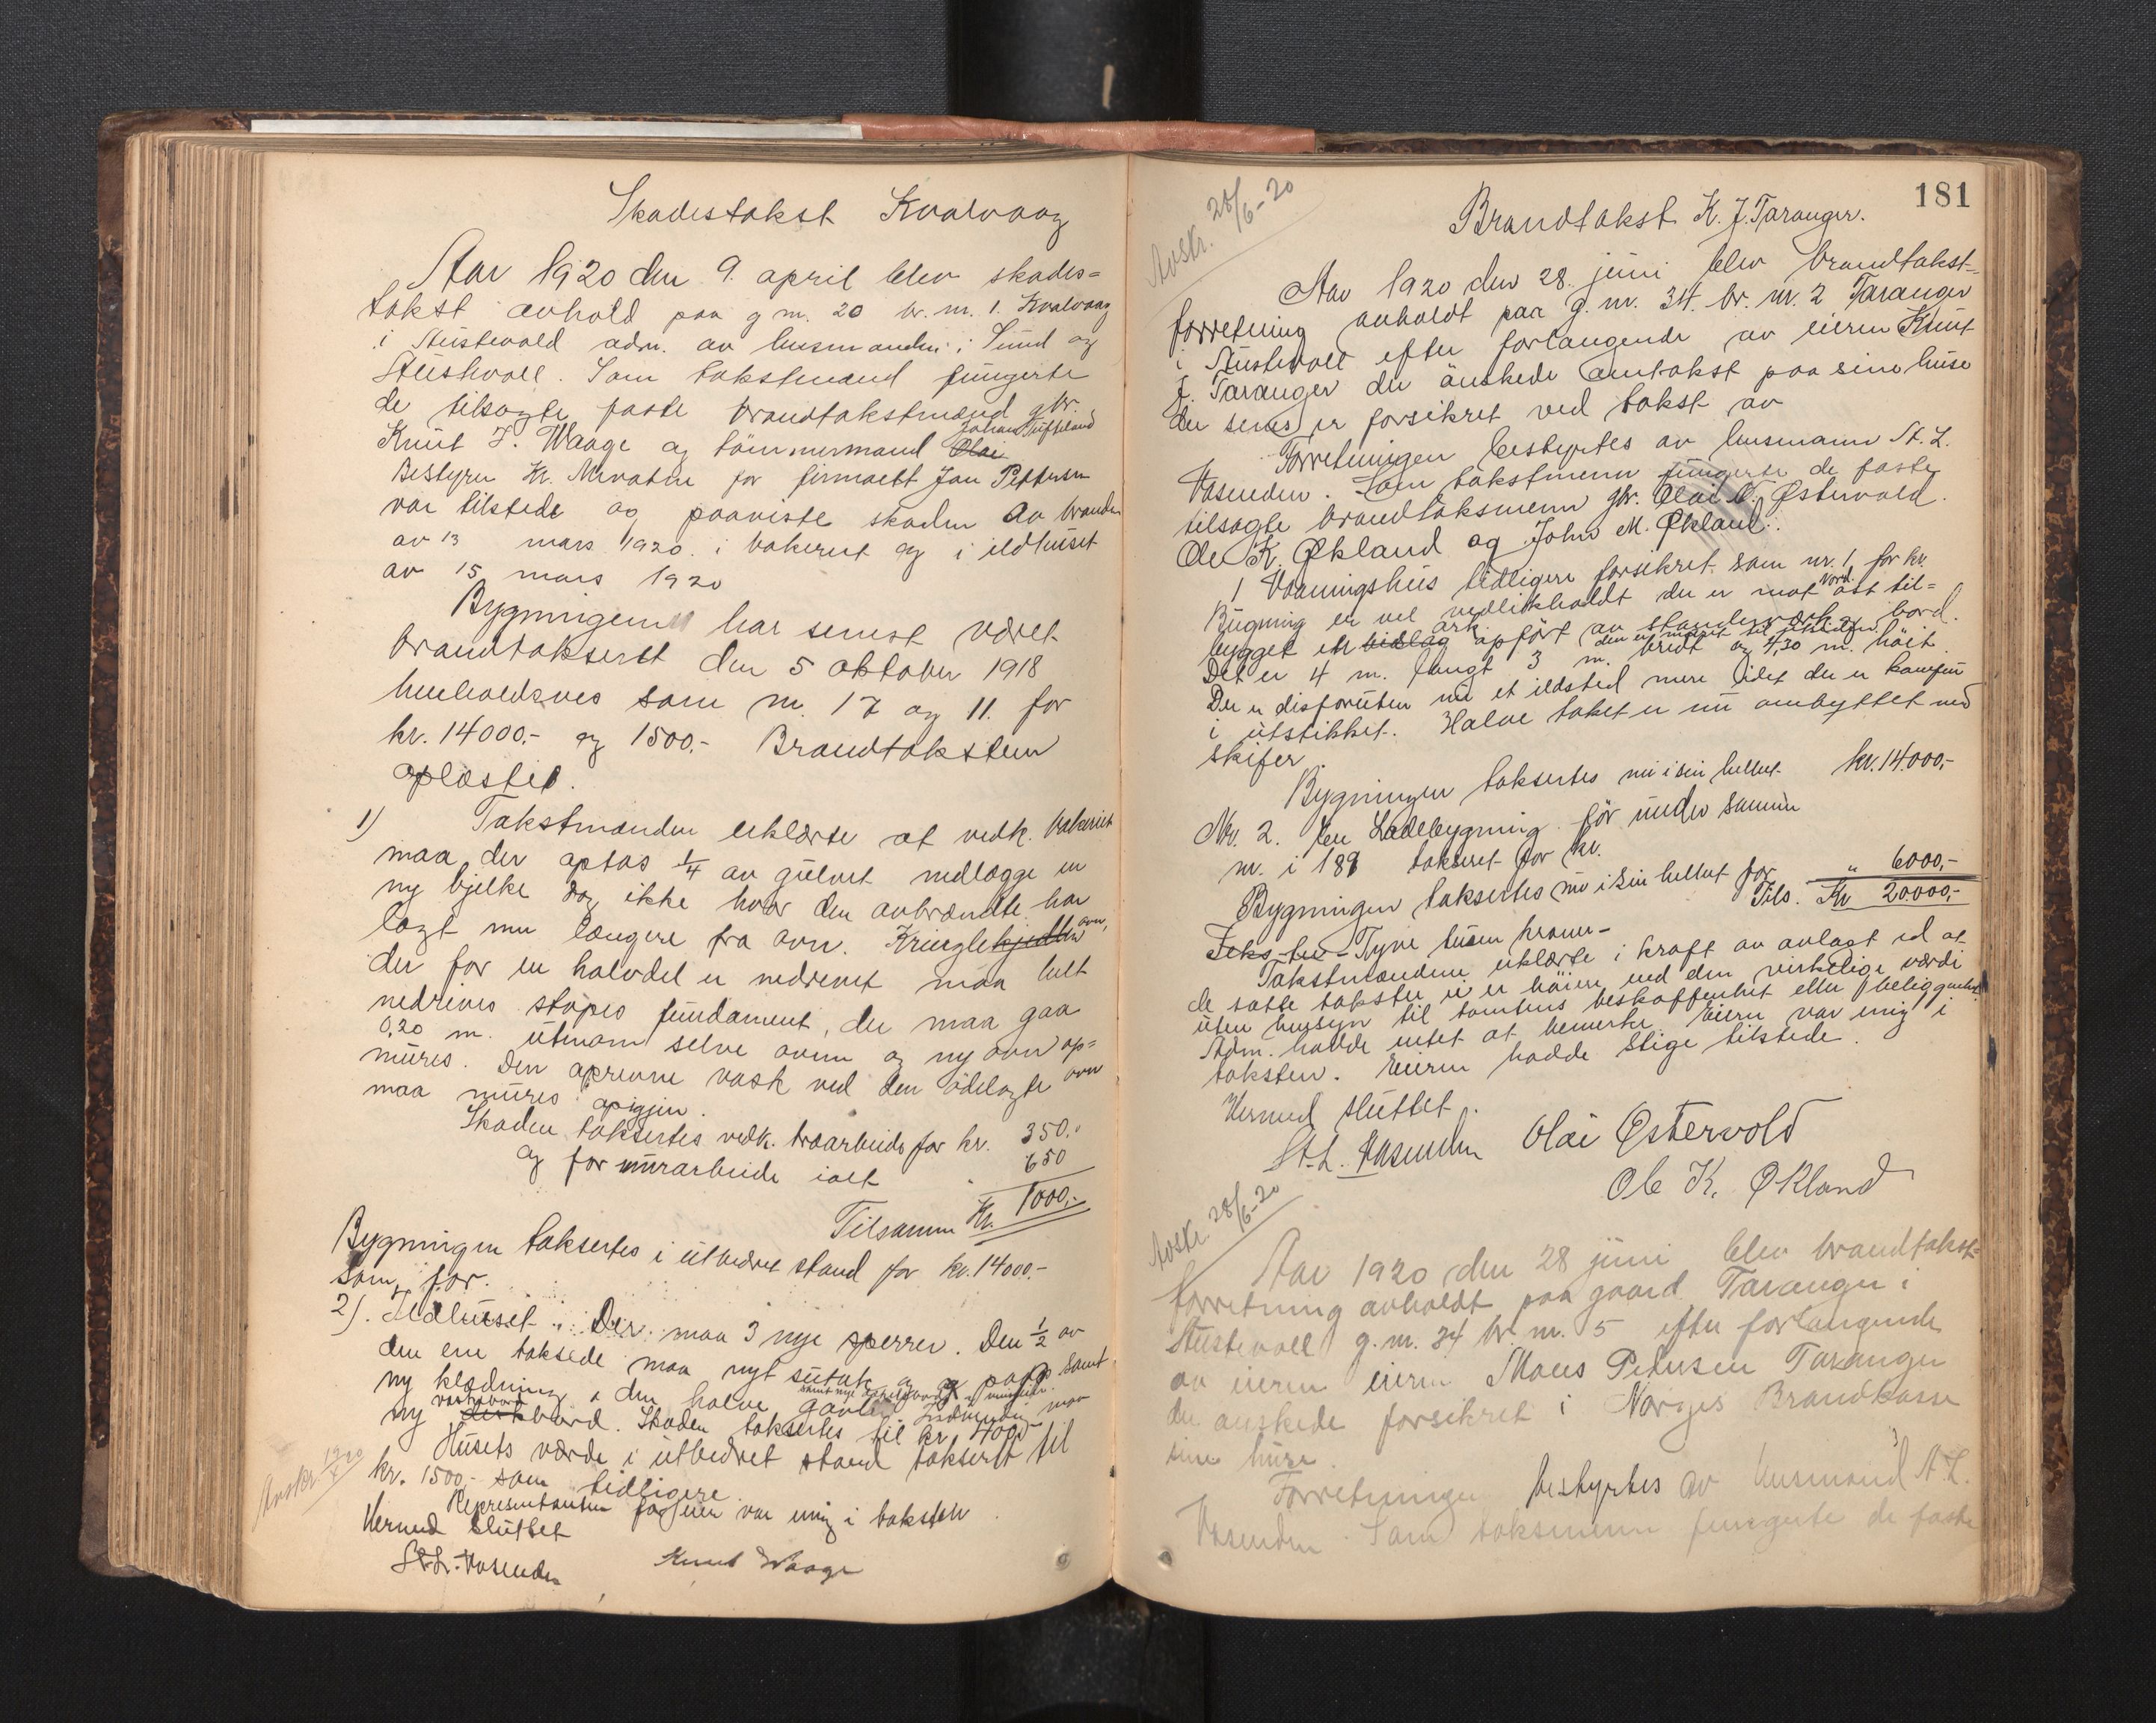 Skadestakst Kvalvaag
Aar 1920 den 9. april blev skades=
takst avhold paa g nr. 20 br. nr. 1. Kvalvaag
i Austevold adm. av lensmanden i Sund og
Austevoll. Som takstmænd fungerte
de tilsagte faste brandtakstmænd gbr.
Johan Tufteland
Knut J. Waage og tömmermand Olai
Bestyrer Kr. Mevatne for firmaett Jan Pettersen
var tilstede og paaviste skaden av branden
av 13 mars 1920 i bakeriet og i ildhuset
av 15 mars 1920
Bygningen har senest været
brandtaksert den 5 oktober 1918
henholdsvis som nr. 17 og 11. for
kr. 14000.- og 1500.- Brandtaksten
oplæstes.
1) Takstmænden erklærte at vedk. bakeriet
maa der optas 1/4 av gulvet nedlægge en
ny bjelke dog ikke hvor den avbrændte har
lagt men længere fra ovn. Kringle kjedlen ovn,
der for en halvdel er nedrevet maa helt
nedrives støpes fundament, der maa gaa
0,20 m. utenom selve ovnen og ny ovn op=
mures. Den oprevne vask ved den ödelagte ovn
maa mures opigjen.
Skaden taksertes vedk. træarbeide for kr. 350.-
og for murarbeide ialt " 650
Tilsamen Kr. 1000,-
Bygningen taksertes i utbedret stand for kr. 14000.-
som för.
2). Ildhuset. Der maa 3 nye sperrer. Den 1/2 av
den ene takside maa nyt sutak og papp samt
ny klædning i den halve gavl.
vastbord
ny bord. Skaden taksertes til kr. 400,-
Husets værde i utbedret stand taksert til
kr. 1500,- som tidligere.
Avskr. 12/4 20
Representanten for eier var enig i taksten
Hermed sluttet
St. L. Vasenden Knut Waage
181
Avskr. 28/6-20
Brandtakst K. J. Taranger.
Aar 1920 den 28. juni blev brandtakst=
forretning avholdt paa g. nr. 34 br. nr. 2 Taranger
i Austevoll efter forlangende av eieren Knut
J. Taranger der önskede omtakst paa sine huse
der senest er forsikret ved takst av
Forretningen bestyrtes av lensmann St. L.
Vasenden. Som takstmenn fungerte de faste
tilsagte brandtaksmenn gbr. Olai O. Østervold.
Ole K. Økland og Johs M. Økland.
1 Vaaningshus tidligere forsikret som nr. 1 for kr.
Bygning er vel vedlikeholdt der er mot Nord öst til=
bygget et bislag ark opført av stenderverk og bord.
Det er 4 m. langt 3 m. bredt og 4,30 m. höit.
Der er disforuten nu et ildsted mere idet der er komfur
i utstikket. Halve taket er nu ombyttet med
skifer.
Bygningen taksertes nu i sin helhet kr. 14.000,-
Nr. 2. En Ladebygning för under samme
nr. i 1891 taksert for kr.
Bygningen taksertes nu i sin helhet for " 6000,-
Tils. Kr 20.000,-
Seks-ten- Tyve tusen kroner-
Takstmændene erklærte i kraft av avlagt ed at
de satte takster ei er höiere end den virkelige værdi
uten hensyn til tomtens beskaffenhet eller beliggenhet.
Adm. hadde intet at bemerke. Eieren var enig i
taksten. Eieren hadde stige tilstede.
Hermed sluttet.
St. L. Vasenden Olai Østervold
Ole K. Økland
Avskr. 28/6-20
Aar 1920 den 28 juni blev brandtakst=
forretning avholdt paa gaard Taranger i
Austevoll g. nr. 34 br. nr. 5 efter forlangende
av eieren eieren Mons Petersen Taranger
der önskede forsikret i Norges Brandkasse
sine huse.
Forretningen bestyrtes av lensmand St. L.
Vasenden. Som taksmenn fungerte de faste